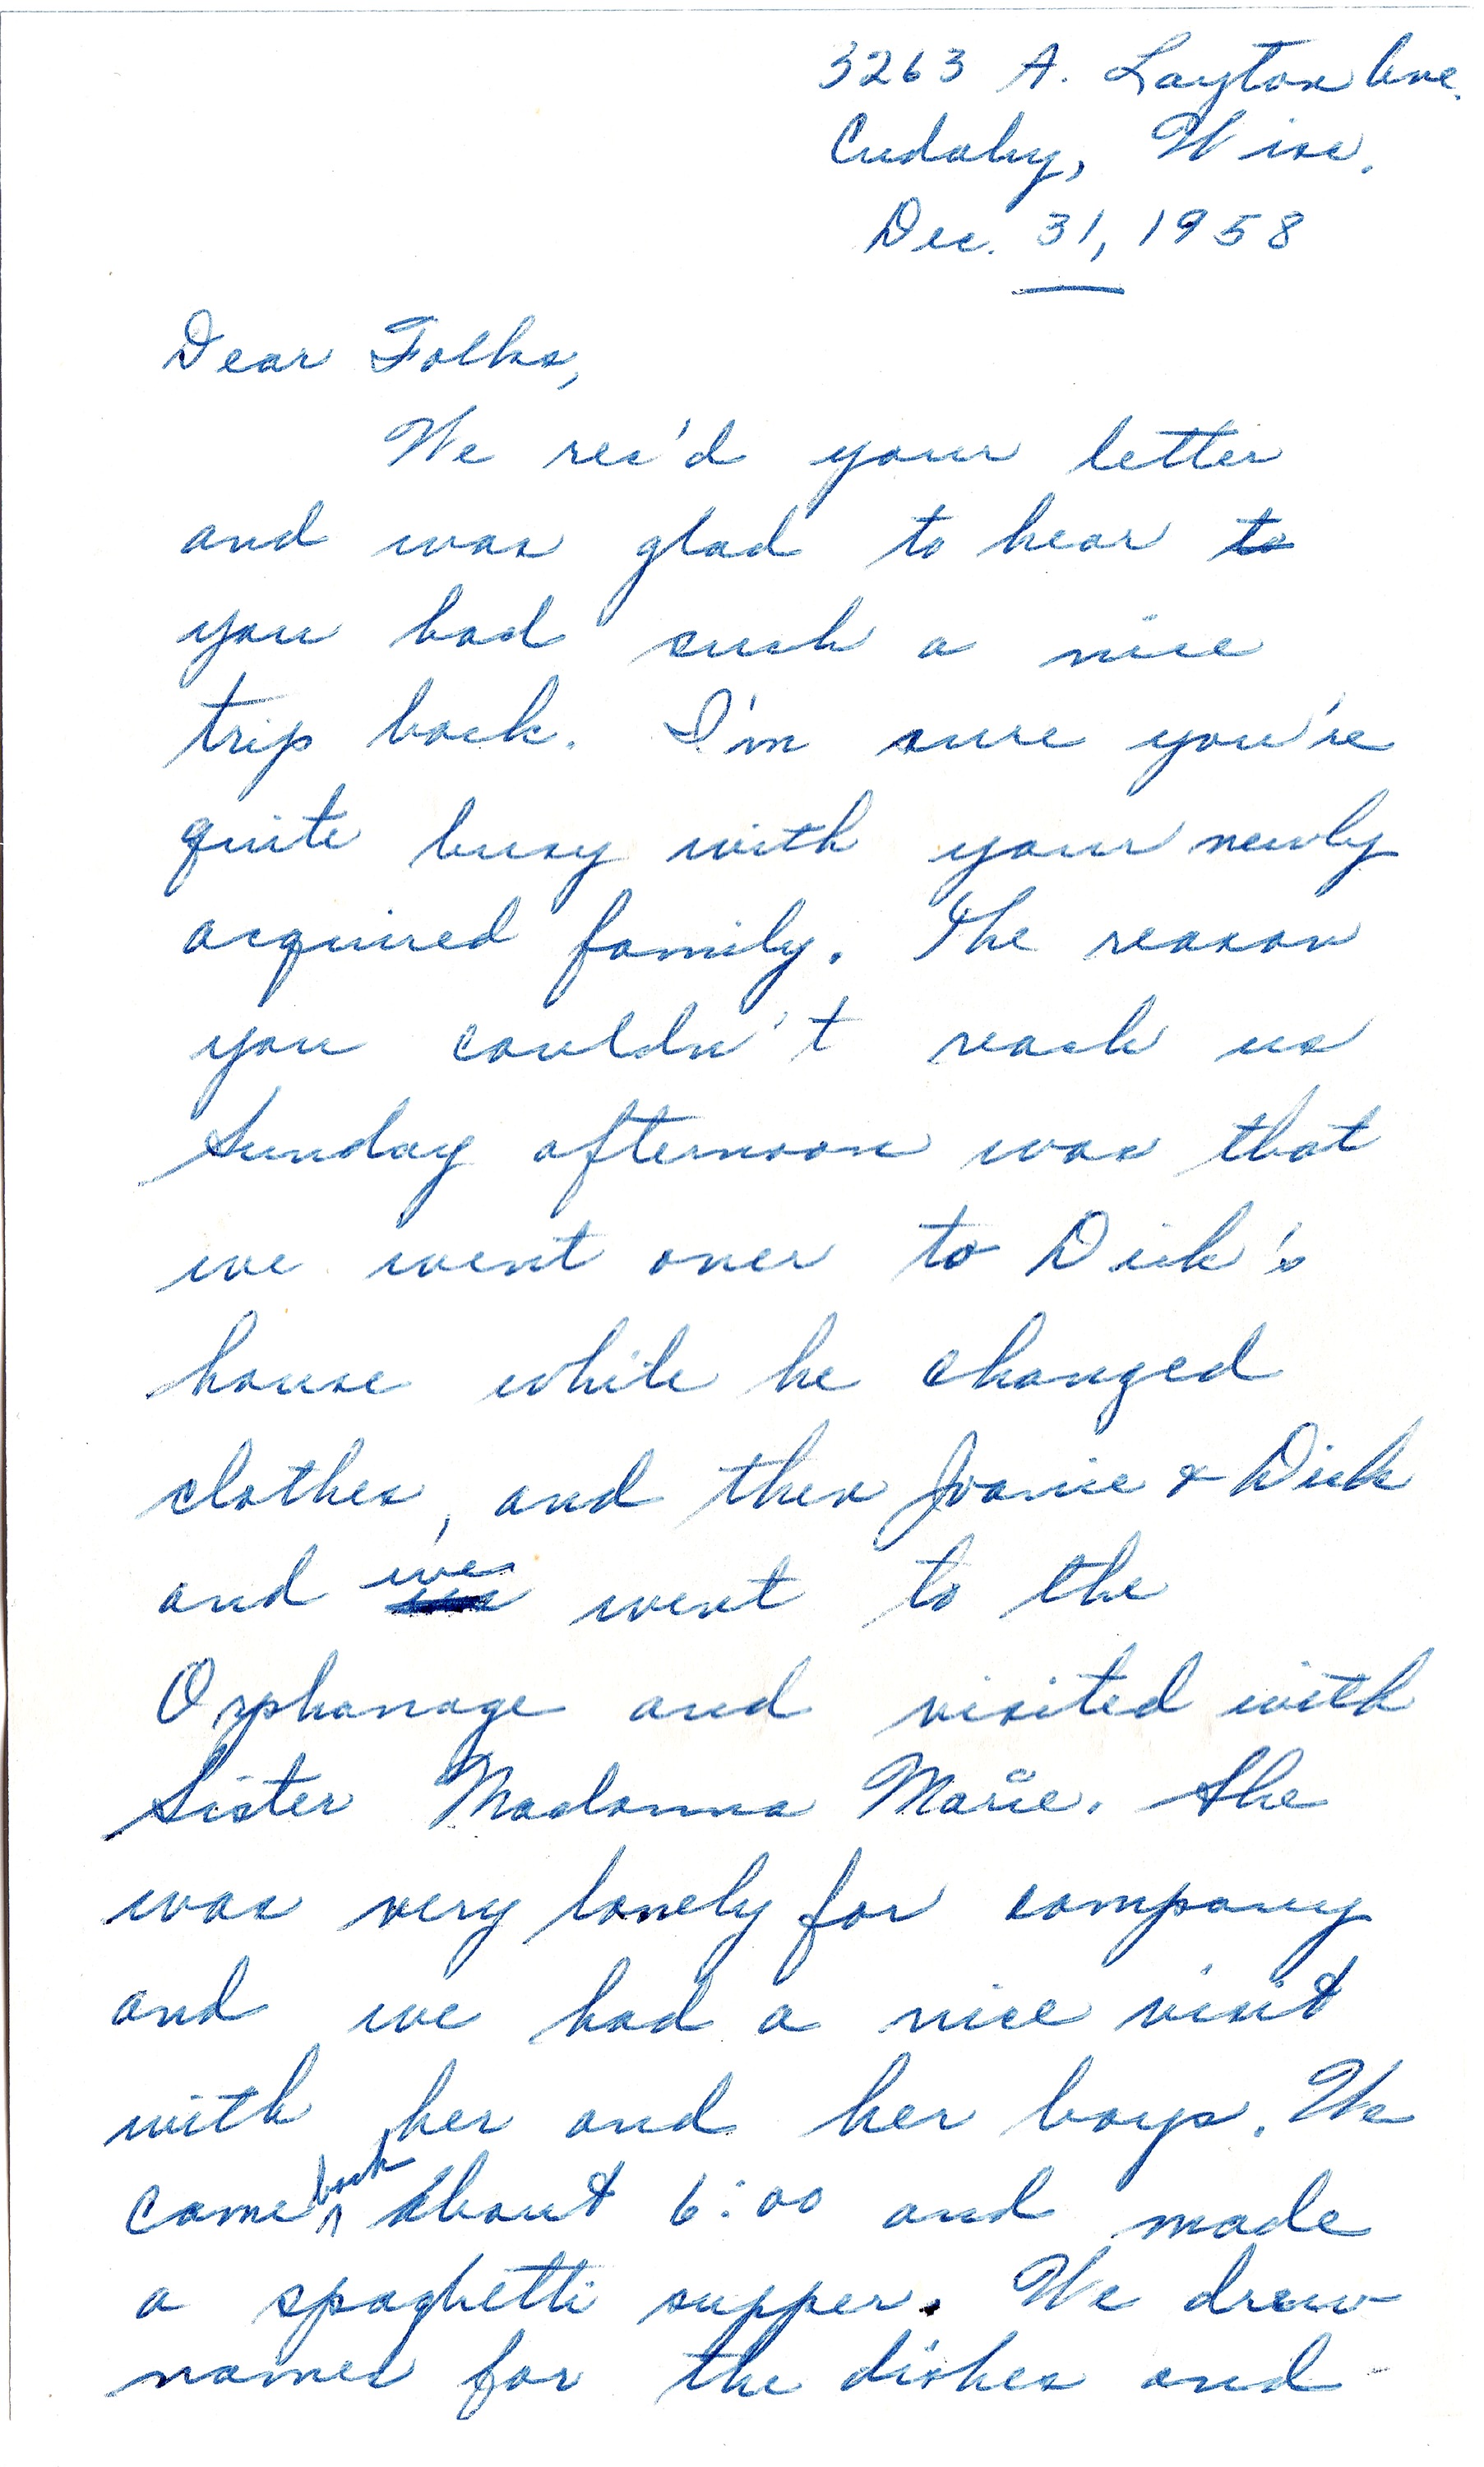 3263 A. Layton Ave.
Cudahy, Wisc.
Dec. 31, 1958
Dear Folks,
We rec'd your letter
and was glad to hear to
you had such a nice
trip back. I'm sure you're
quite busy with your newly
acquired family. The reason
you couldn't reach us
Sunday afternoon was that
we went over to Dick's
house while he changed
clothes, and then Joanie & Dick
and we went to the
Orphanage and visited with
Sister Madonna Marie. She
was very lonely for company
and we had a nice visit
with her and her boys. We
came back about 6:00 and made
a spaghetti supper. We drew
names for the dishes and